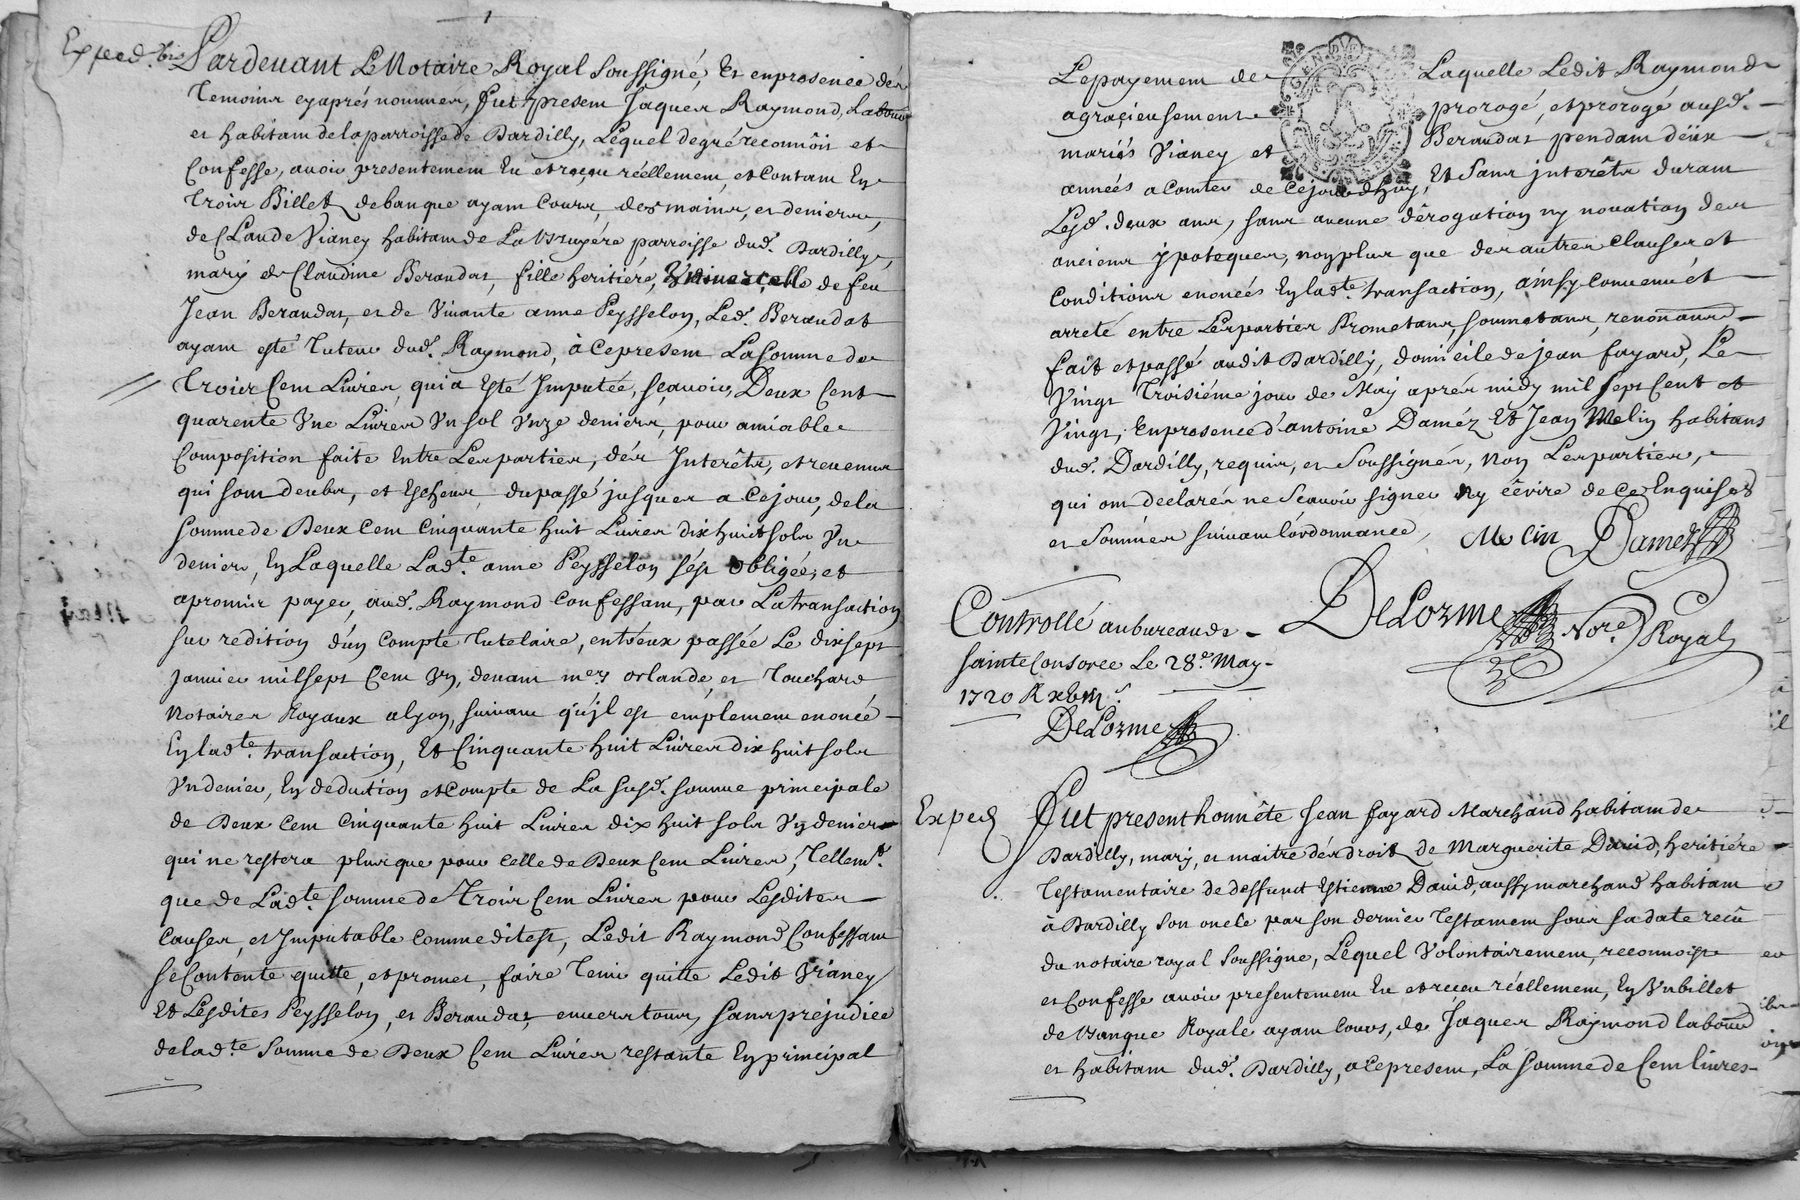 Expéd. bis
Pardevant Le Notaire Royal Soussigné, Et en presence des
temoins cy aprés nommés, Fut present Jaques Raymond, Labour
et habitant de la parroisse de Dardilly, Lequel de gré reconnoit et
Confesse, avoir presentement Eu et reçeu réellement, et Contant En
Trois Billets de banque ayant Cours, des mains, et deniers,
de Claude Vianey habitant de La Bruyére parroisse dud. Dardilly,
mary de Claudine Beraudat, fille heritiére, Universelle de feu
Jean Beraudat, et de Vivante anne Peysselon, Led. Beraudat
ayant esté Tuteur dud. Raymond, à Ce present La Somme de
Trois Cent Livres, qui a Esté Imputée, sçavoir, Deux Cent
quarente Une Livres Un sol Unze deniers, pour amiable
Composition faite Entre Les parties, des Interêts, et revenus
qui sont deubs, et Escheus, du passé jusques a Ce jour, de la
somme de Deux Cent Cinquante huit Livres dix huit sols Un
denier, En Laquelle Lad.te anne Peysselon s'est obligée, et
a promis payer, aud. Raymond Confessant, par La transaction
sur redition d'un Compte tutelaire, entr'eux passée Le dix sept
Janvier mil sept Cent Un, devant mes Orlande, et Touchard
Notaires Royaux a Lyon, suivant qu'jl est emplement enoncé
En lad.te transaction, Et Cinquante huit Livres dix huit sols
Un denier, En deduction et compte de La susd. somme principale
de Deux Cent Cinquante huit Livres dix huit sols Un denier
qui ne restera plus que pour Celle de Deux Cent Livres, Tellemt.
que de Lad.te somme de Trois Cent Livres pour Lesdites
Causes, et Imputable Comme dit est, Ledit Raymond Confessant
se Contente quitte, et promet, faire tenir quitte Ledit Vianey
Et Lesdites Peysselon, et Beraudat envers tous, sans prejudice
de lad.te Somme de Deux Cent Livres restante En principal
Le payement de Laquelle Ledit Raymond
agraçieusement prorogé, et prorogé ausd.
mariés Vianey et Beraudat pendant deüx
années a Comter de Cejourdhuy, Et Sans jnterêts durant
Lesd. deux ans, sans aucune dérogation ny novation des
anciens ypoteques, non plus que des autres Clauses et
Conditions enoncés En lad.te transaction, ainsy Convenu et
arreté entre Les parties Prometans, soumetans, renonçans
fait et passé audit Dardilly, domicile de jean fayard, Le
Vingt Troisiéme jour de May aprés midy mil sept Cent et
Vingt, En presence d'antoine Daméz Et Jean Melin habitans
dud. Dardilly, requis, et Soussignés, Non Les parties,
qui ont declarés ne Scavoir signer Ny êcrire de Ce Enquises
et Sommées suivant l'ordonnance,
Melin Damez
DeLorme Nore. Royal
Controllé au bureau de
sainte Consorce Le 28.e May
1720 R
DeLorme
Exped
Fut present honnête Jean fayard Marchand habitant de
Dardilly, mary, et maitre des droits de Marguerite David, heritiére
Testamentaire de deffunt Estienne David aussy marchand habitant
à Dardilly son oncle par son dernier Testament sous sa date reçû
du notaire royal soussigné, Lequel Volontairement, reconnoist
et Confesse avoir presentement Eu et reçeu réellement, En Un billet
de Banque Royale ayant Cours, de Jaques Raymond laboure
et habitant dud. Dardilly, a Ce present, La Somme de Cent livres